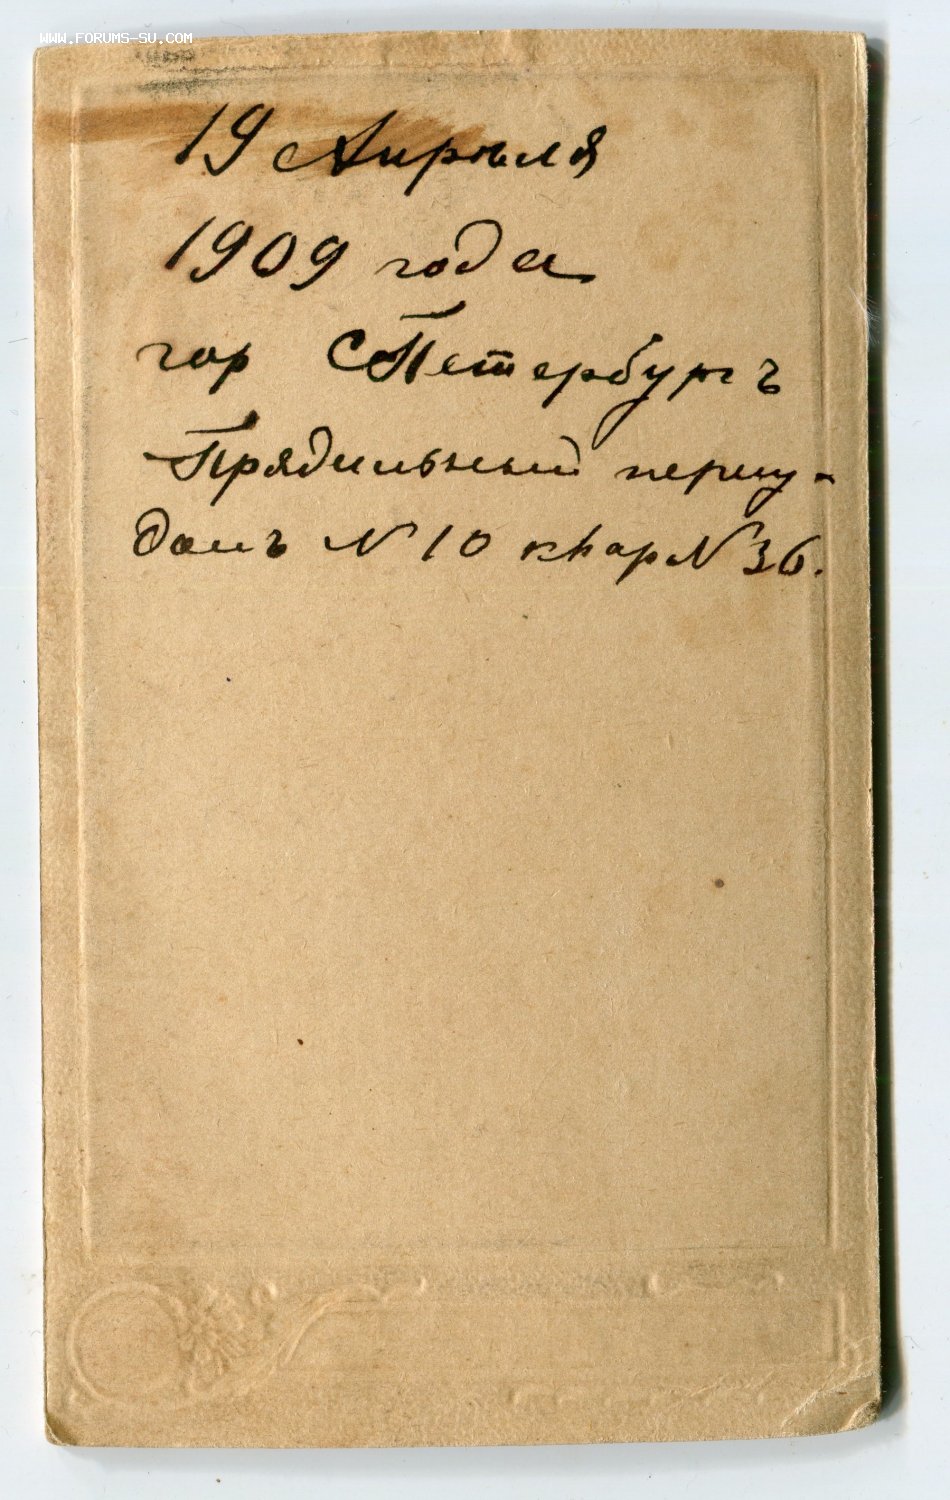 WWW.FORUMS-SU.COM
19 Апрѣля
1909 года
гор СПетербургъ
Прядильный переу-
домъ N 10 квар N 36.